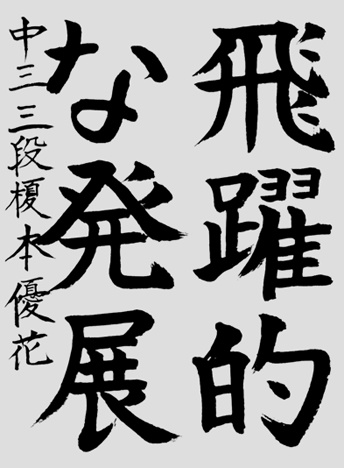 飛躍的
な発展
中三三段榎本優花